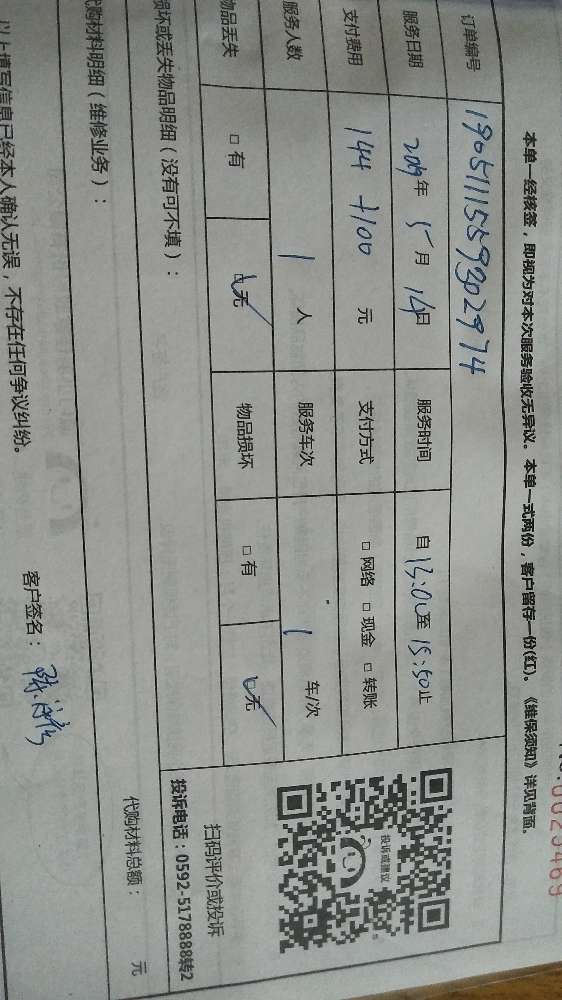 本单一经核签，即视为对本次服务验收无异议。本单一式两份，客户留存一份(红)。《维保须知》详见背面。
订单编号 19051115593029 74
服务日期 2019年 5月 14日 服务时间 自 13:00至 15:50止
支付费用 144 +100 元 支付方式 □ 网络 □ 现金 □ 转账
服务人数 1 人 服务车次 1 车/次
物品丢失 □ 有 □ 无 物品损坏 □ 有 □ 无
损坏或丢失物品明细（没有可不填）：
代购材料明细（维修业务）：
代购材料总额： 元
以上填写信息已经本人确认无误，不存在任何争议纠纷。
客户签名：
投诉或建议
扫码评价或投诉
投诉电话：0592-5178888转2